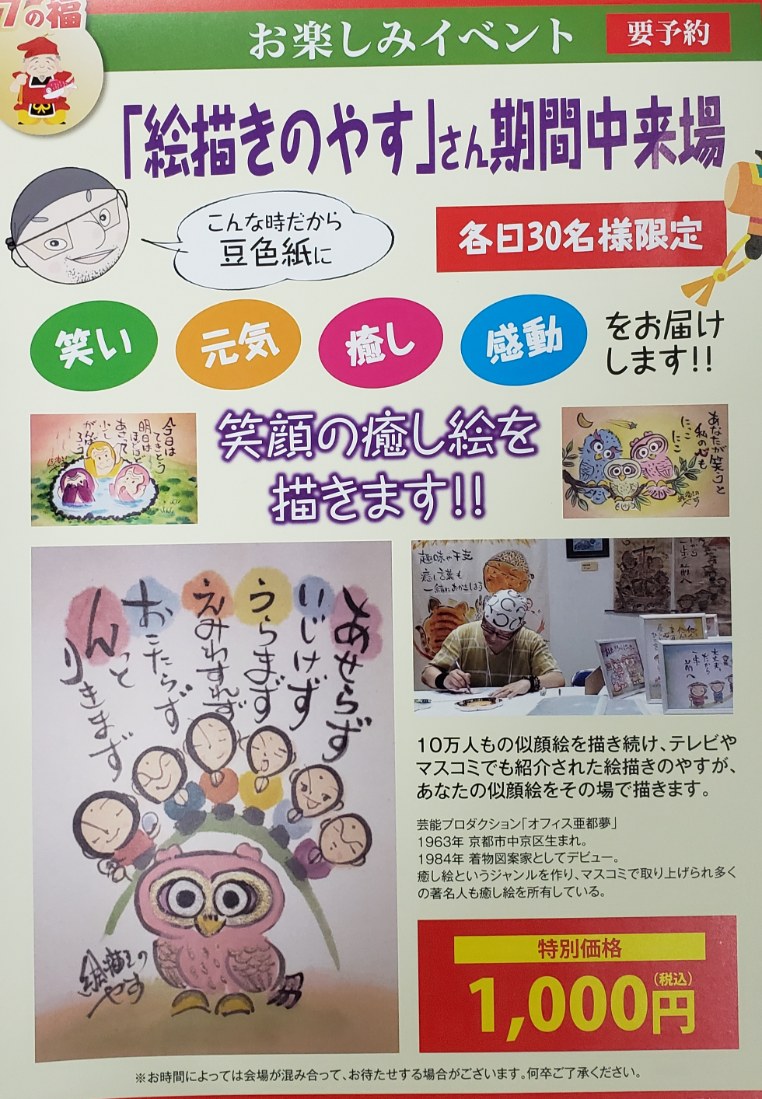 7の福
お楽しみイベント
要予約
「絵描きのやす」さん期間中来場
こんな時だから
豆色紙に
各日30名様限定
笑い
元気
癒し
感動
をお届け
します!!
笑顔の癒し絵を
描きます!!
今日は
できとう
明日は
ほどほど
あさって
少し
がんばろう
あなたが笑うと
私の心も
にこ
にこ
あせらず
いじけず
うらまず
えみわすれず
おこたらず
んっと
りきまず
絵描きの
やす
趣味の干支
癒し言葉も
一緒におかきしまう
10万人もの似顔絵を描き続け、テレビや
マスコミでも紹介された絵描きのやすが、
あなたの似顔絵をその場で描きます。
芸能プロダクション「オフィス亜都夢」
1963年 京都市中京区生まれ。
1984年 着物図案家としてデビュー。
癒し絵というジャンルを作り、マスコミで取り上げられ多く
の著名人も癒し絵を所有している。
特別価格
1,000円
(税込)
※お時間によっては会場が混み合って、お待たせする場合がございます。何卒ご了承ください。